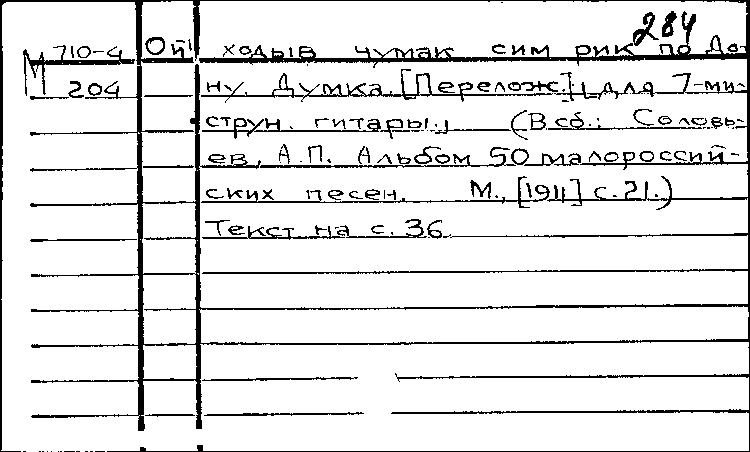 284
М 710-4 Ой ходыв чумак сим рик по До-
204 ну. Думка. [Перелож.] для 7-ми-
струн. гитары. (В сб.: Соловь-
ев, А.П. Альбом 50 малороссий-
ских песен. М., [1911] с. 21.)
Текст на с. 36